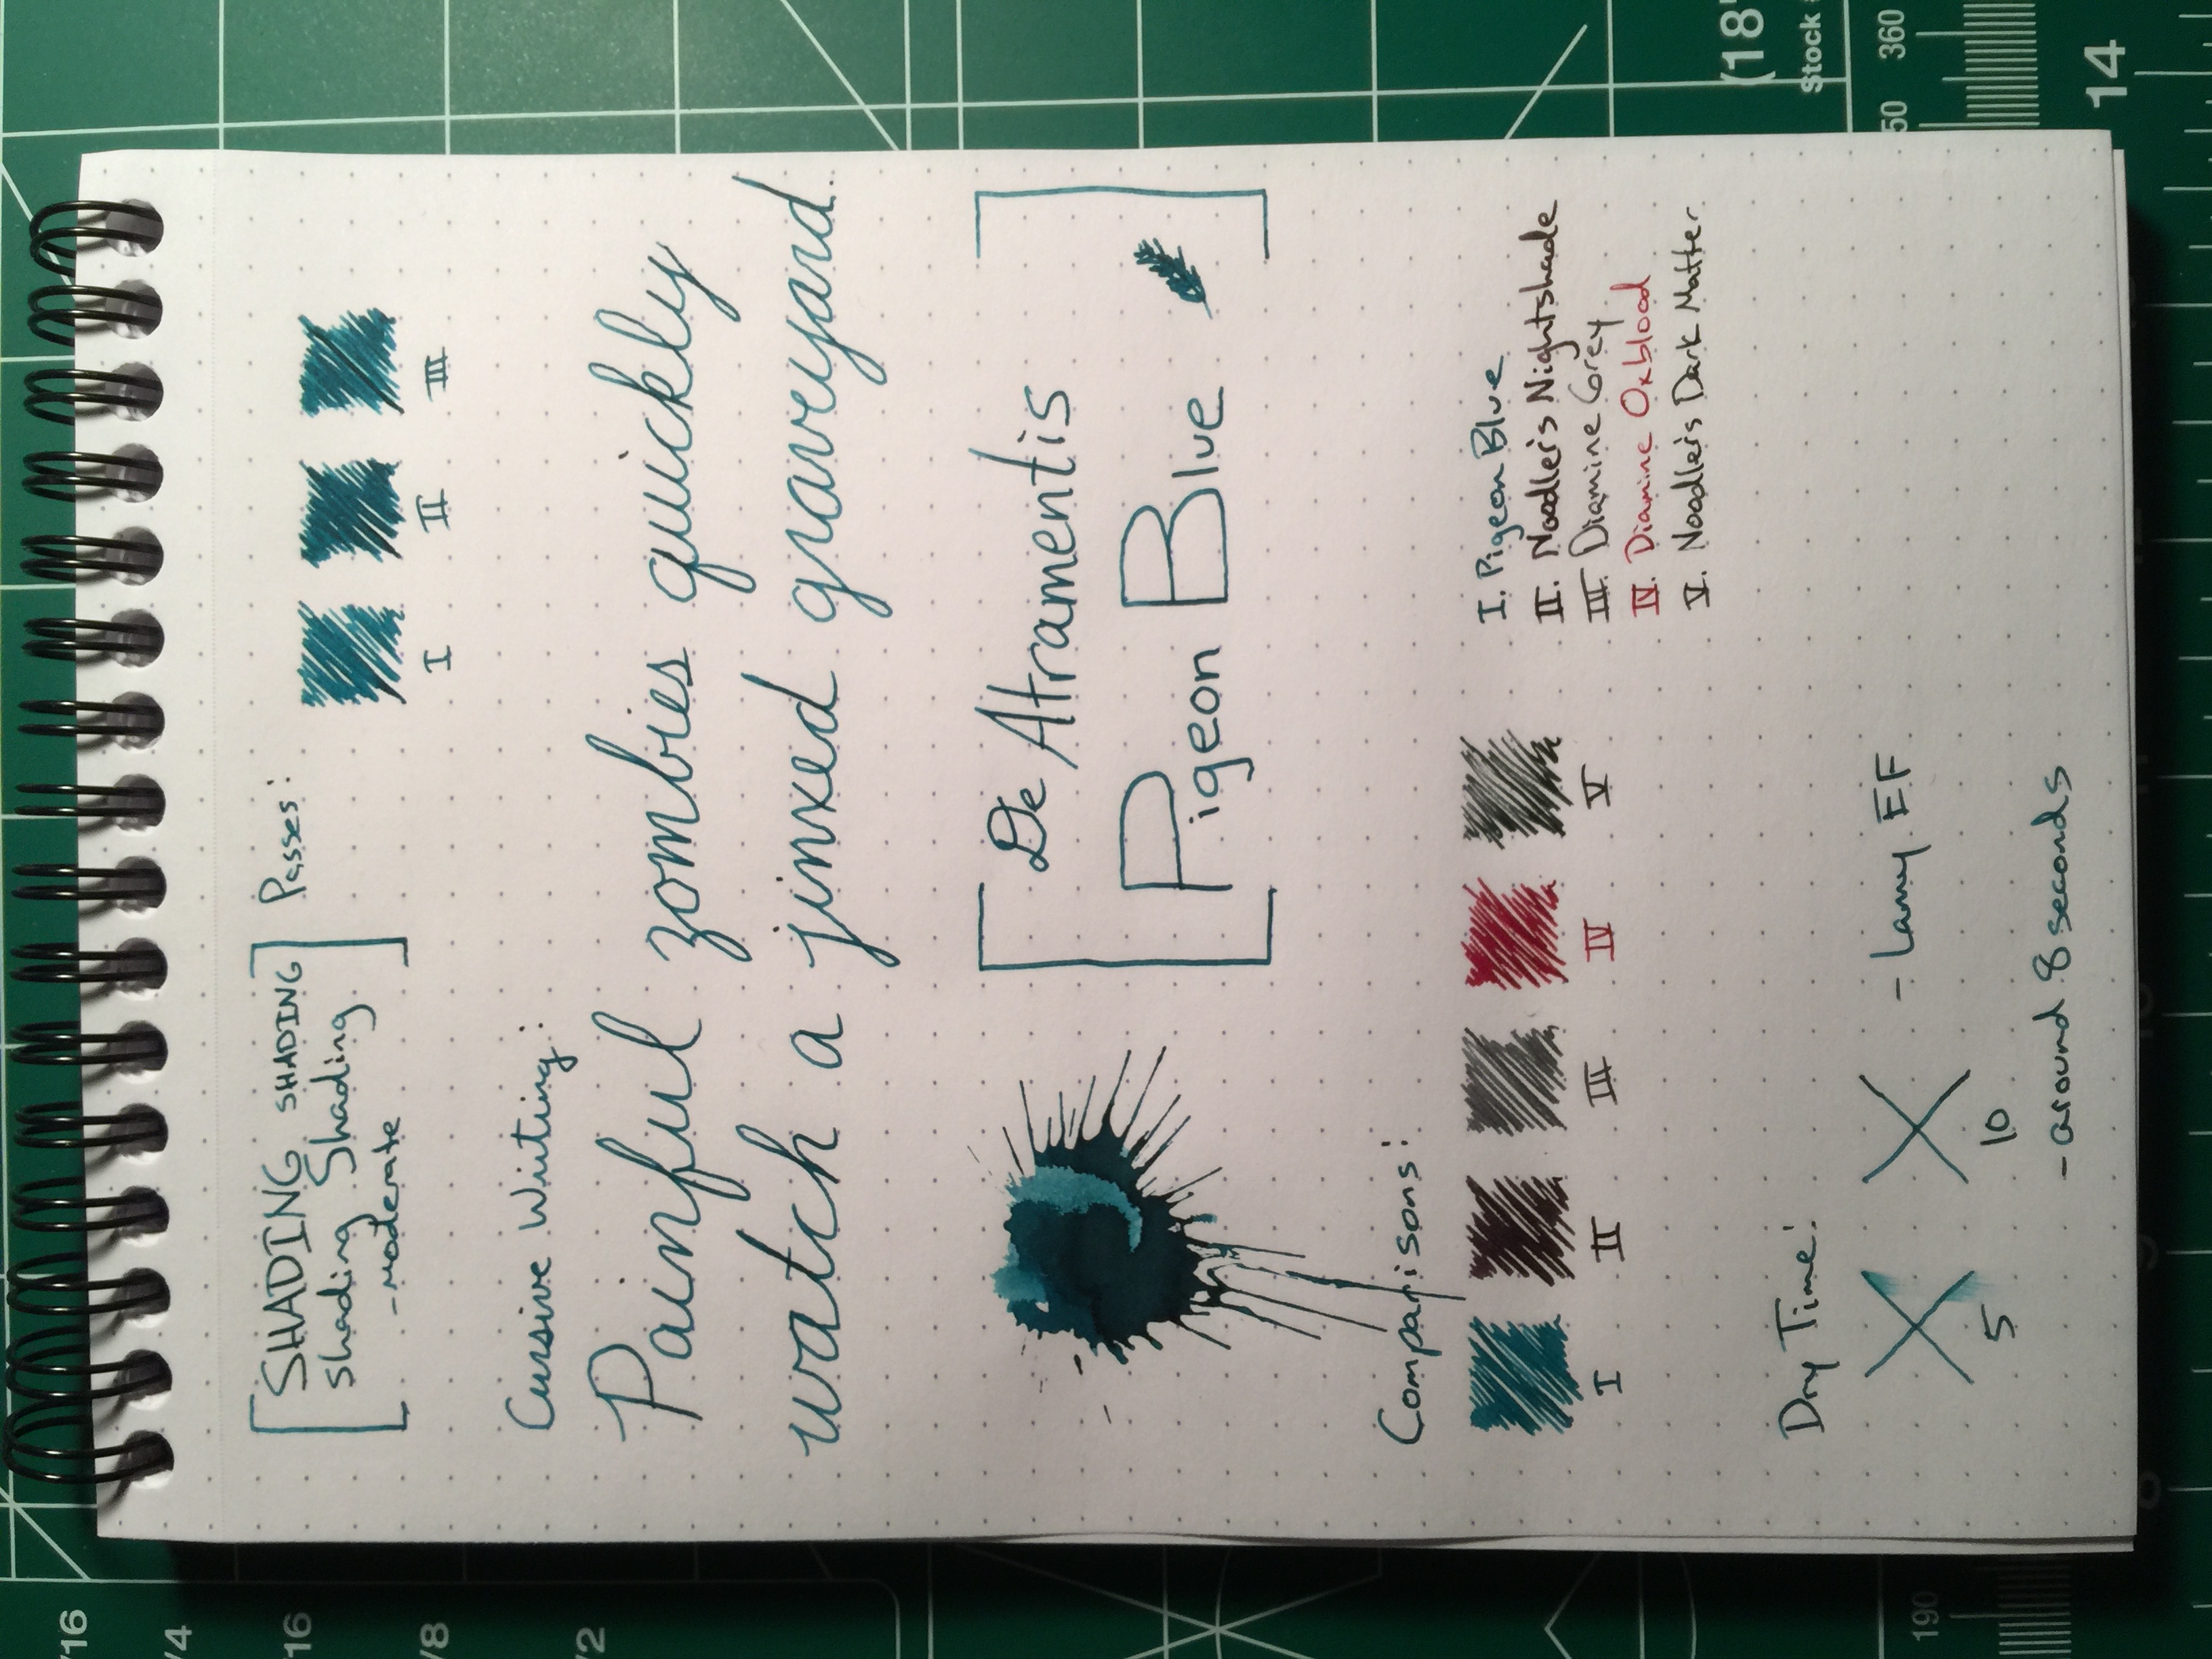 SHADING SHADING
shading Shading
-moderate
Passes:
I II III
Cursive Writing:
Painful zombies quickly
watch a jinxed graveyard.
De Atramentis
Pigeon Blue
Comparisons:
I II III IV V
I. Pigeon Blue
II. Noodler's Nightshade
III. Diamine Grey
IV. Diamine Oxblood
V. Noodler's Dark Matter
Dry Time:
5 10
- Lamy EF
- around 8 seconds
(18"
Stock
360
14
190
/16
/4
/16
/8
/2